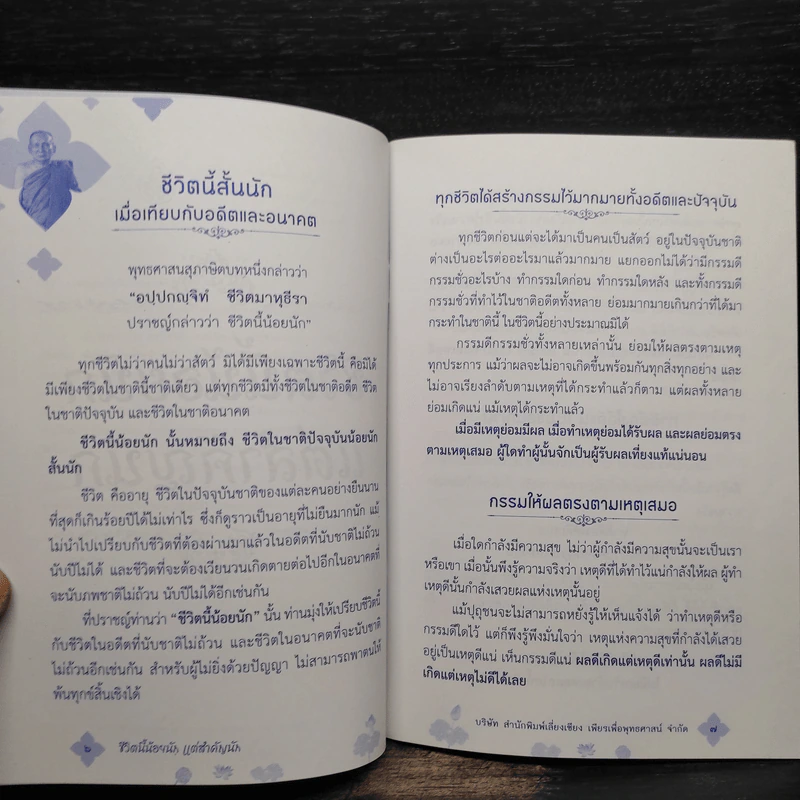 ชีวิตนี้สั้นนัก
เมื่อเทียบกับอดีตและอนาคต
พุทธศาสนสุภาษิตบทหนึ่งกล่าวว่า
“อปฺปกญฺจิทํ ชีวิตมาหุธีรา
ปราชญ์กล่าวว่า ชีวิตนี้น้อยนัก”
ทุกชีวิตไม่ว่าคนไม่ว่าสัตว์ มิได้มีเพียงเฉพาะชีวิตนี้ คือมิได้
มีเพียงชีวิตในชาตินี้ชาติเดียว แต่ทุกชีวิตมีทั้งชีวิตในชาติอดีต ชีวิต
ในชาติปัจจุบัน และชีวิตในชาติอนาคต
ชีวิตนี้น้อยนัก นั้นหมายถึง ชีวิตในชาติปัจจุบันน้อยนัก
สั้นนัก
ชีวิต คืออายุ ชีวิตในปัจจุบันชาติของแต่ละคนอย่างยืนนาน
ที่สุดก็เกินร้อยปีได้ไม่เท่าไร ซึ่งก็ดูราวเป็นอายุที่ไม่ยืนมากนัก แม้
ไม่นำไปเปรียบกับชีวิตที่ต้องผ่านมาแล้วในอดีตที่นับชาติไม่ถ้วน
นับปีไม่ได้ และชีวิตที่จะต้องเวียนวนเกิดตายต่อไปอีกในอนาคตที่
จะนับภพชาติไม่ถ้วน นับปีไม่ได้อีกเช่นกัน
ที่ปราชญ์ท่านว่า “ชีวิตนี้น้อยนัก” นั้น ท่านมุ่งให้เปรียบชีวิตนี้
กับชีวิตในอดีตที่นับชาติไม่ถ้วน และชีวิตในอนาคตที่จะนับชาติ
ไม่ถ้วนอีกเช่นกัน สำหรับผู้ไม่ยิ่งด้วยปัญญา ไม่สามารถพาตนให้
พ้นทุกข์สิ้นเชิงได้
๖ ชีวิตนี้น้อยนัก แต่สำคัญนัก
ทุกชีวิตได้สร้างกรรมไว้มากมายทั้งอดีตและปัจจุบัน
ทุกชีวิตก่อนแต่จะได้มาเป็นคนเป็นสัตว์ อยู่ในปัจจุบันชาติ
ต่างเป็นอะไรต่ออะไรมาแล้วมากมาย แยกออกไม่ได้ว่ามีกรรมดี
กรรมชั่วอะไรบ้าง ทำกรรมใดก่อน ทำกรรมใดหลัง และทั้งกรรมดี
กรรมชั่วที่ทำไว้ในชาติอดีตทั้งหลาย ย่อมมากมายเกินกว่าที่ได้มา
กระทำในชาตินี้ ในชีวิตนี้อย่างประมาณมิได้
กรรมดีกรรมชั่วทั้งหลายเหล่านั้น ย่อมให้ผลตรงตามเหตุ
ทุกประการ แม้ว่าผลจะไม่อาจเกิดขึ้นพร้อมกันทุกสิ่งทุกอย่าง และ
ไม่อาจเรียงลำดับตามเหตุที่ได้กระทำแล้วก็ตาม แต่ผลทั้งหลาย
ย่อมเกิดแน่ แม้เหตุได้กระทำแล้ว
เมื่อมีเหตุย่อมมีผล เมื่อทำเหตุย่อมได้รับผล และผลย่อมตรง
ตามเหตุเสมอ ผู้ใดทำผู้นั้นจักเป็นผู้รับผลเที่ยงแท้แน่นอน
กรรมให้ผลตรงตามเหตุเสมอ
เมื่อใดกำลังมีความสุข ไม่ว่าผู้กำลังมีความสุขนั้นจะเป็นเรา
หรือเขา เมื่อนั้นพึงรู้ความจริงว่า เหตุดีที่ได้ทำไว้แน่กำลังให้ผล ผู้ทำ
เหตุดีนั้นกำลังเสวยผลแห่งเหตุนั้นอยู่
แม้ปุถุชนจะไม่สามารถหยั่งรู้ให้เห็นแจ้งได้ ว่าทำเหตุดีหรือ
กรรมดีใดไว้ แต่ก็พึงรู้พึงมั่นใจว่า เหตุแห่งความสุขที่กำลังได้เสวย
อยู่เป็นเหตุดีแน่ เห็นกรรมดีแน่ ผลดีเกิดแต่เหตุดีเท่านั้น ผลดีไม่มี
เกิดแต่เหตุไม่ดีได้เลย
บริษัท สำนักพิมพ์เลี่ยงเชียง เพียรเพื่อพุทธศาสน์ จำกัด ๗